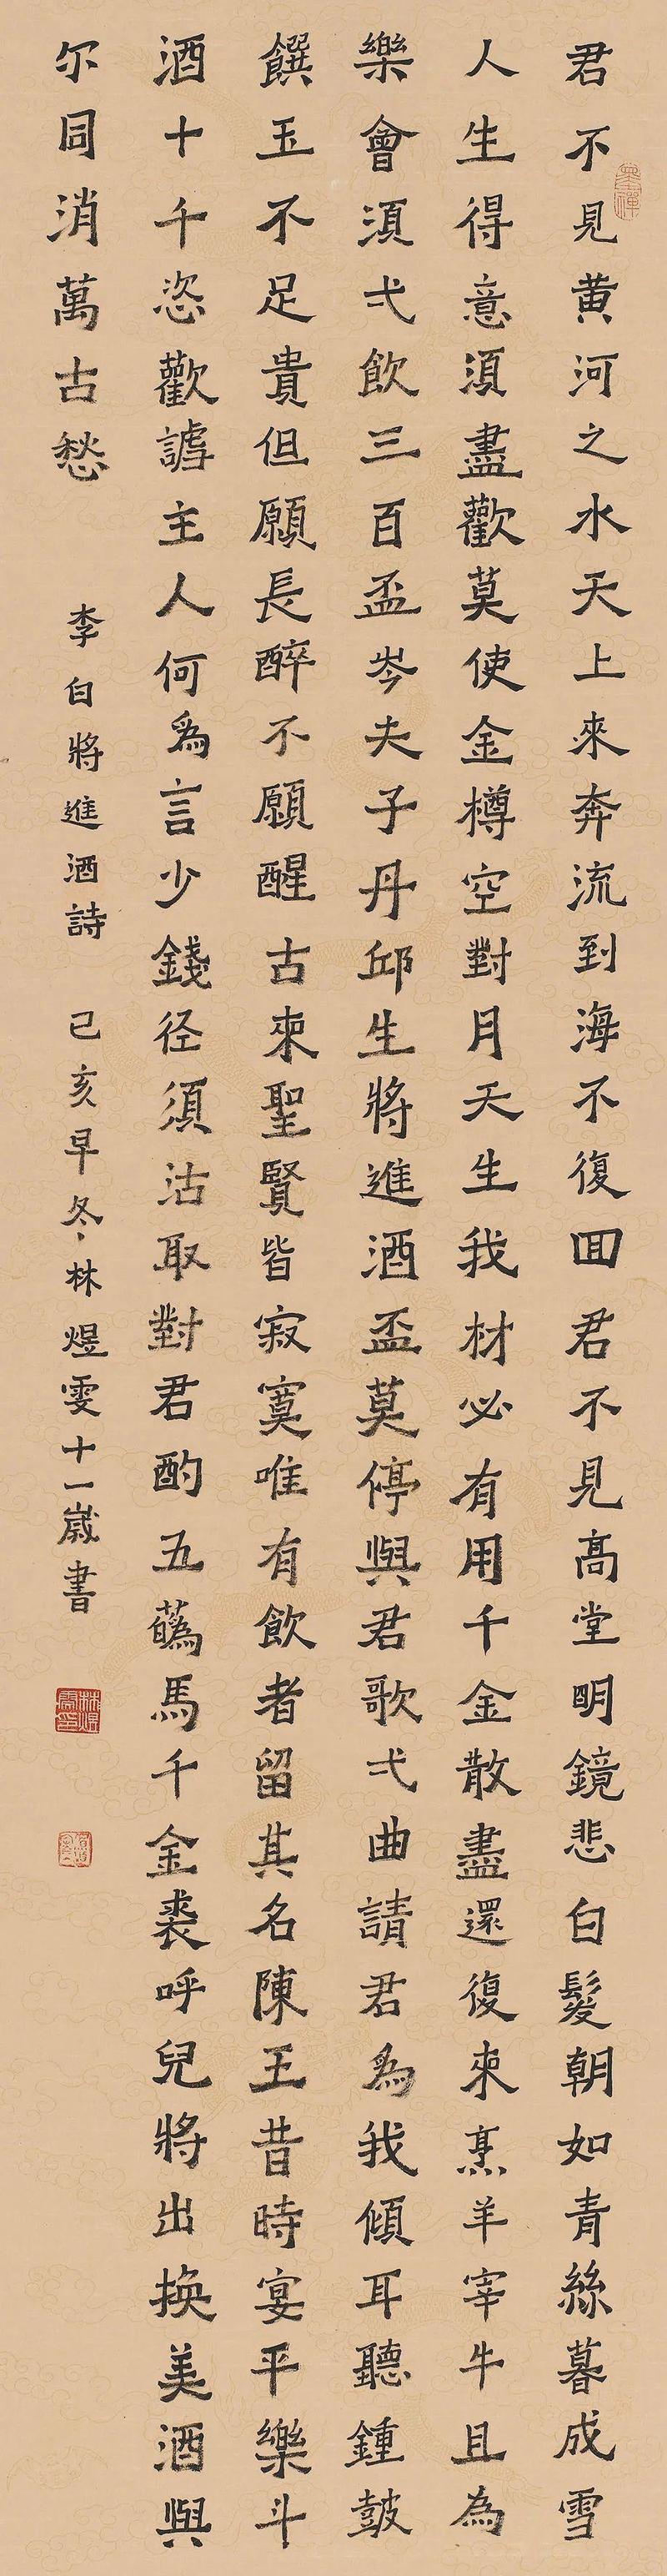 君不見黄河之水天上來奔流到海不復囬君不見髙堂眀鏡悲白髮朝如青絲暮成雪
人生得意湏盡歡莫使金樽空對月天生我材必有用千金散盡還復来烹羊宰牛且為
樂會湏弌飲三百盃岑夫子丹邱生將進酒盃莫停與君歌弌曲請君為我傾耳聽鍾皷
饌玉不足貴但願長醉不願醒古来聖賢皆寂寞唯有飲者留其名陳王昔時宴平樂斗
酒十千恣歡謔主人何為言少錢径須沽取對君酌五蘤馬千金裘呼兒將出換美酒與
尔同消萬古愁
李白將進酒詩 己亥早冬林煜雯十一歲書
林煜雯印